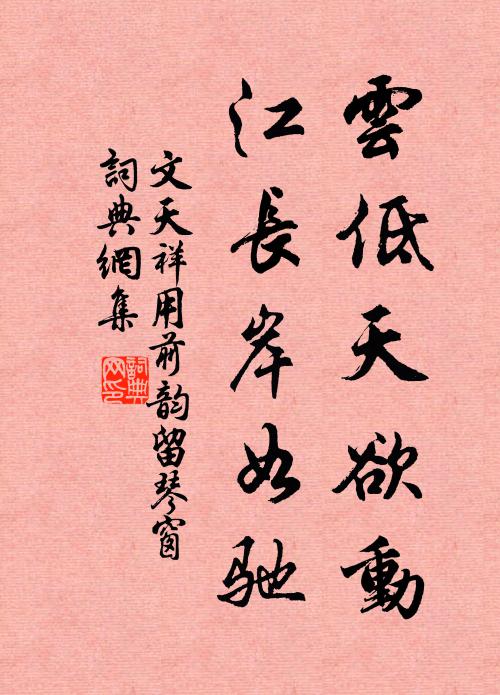 雲低天欲動
江長岸如馳
文天祥用前韵留琴窗
詞典網集
詞典網印